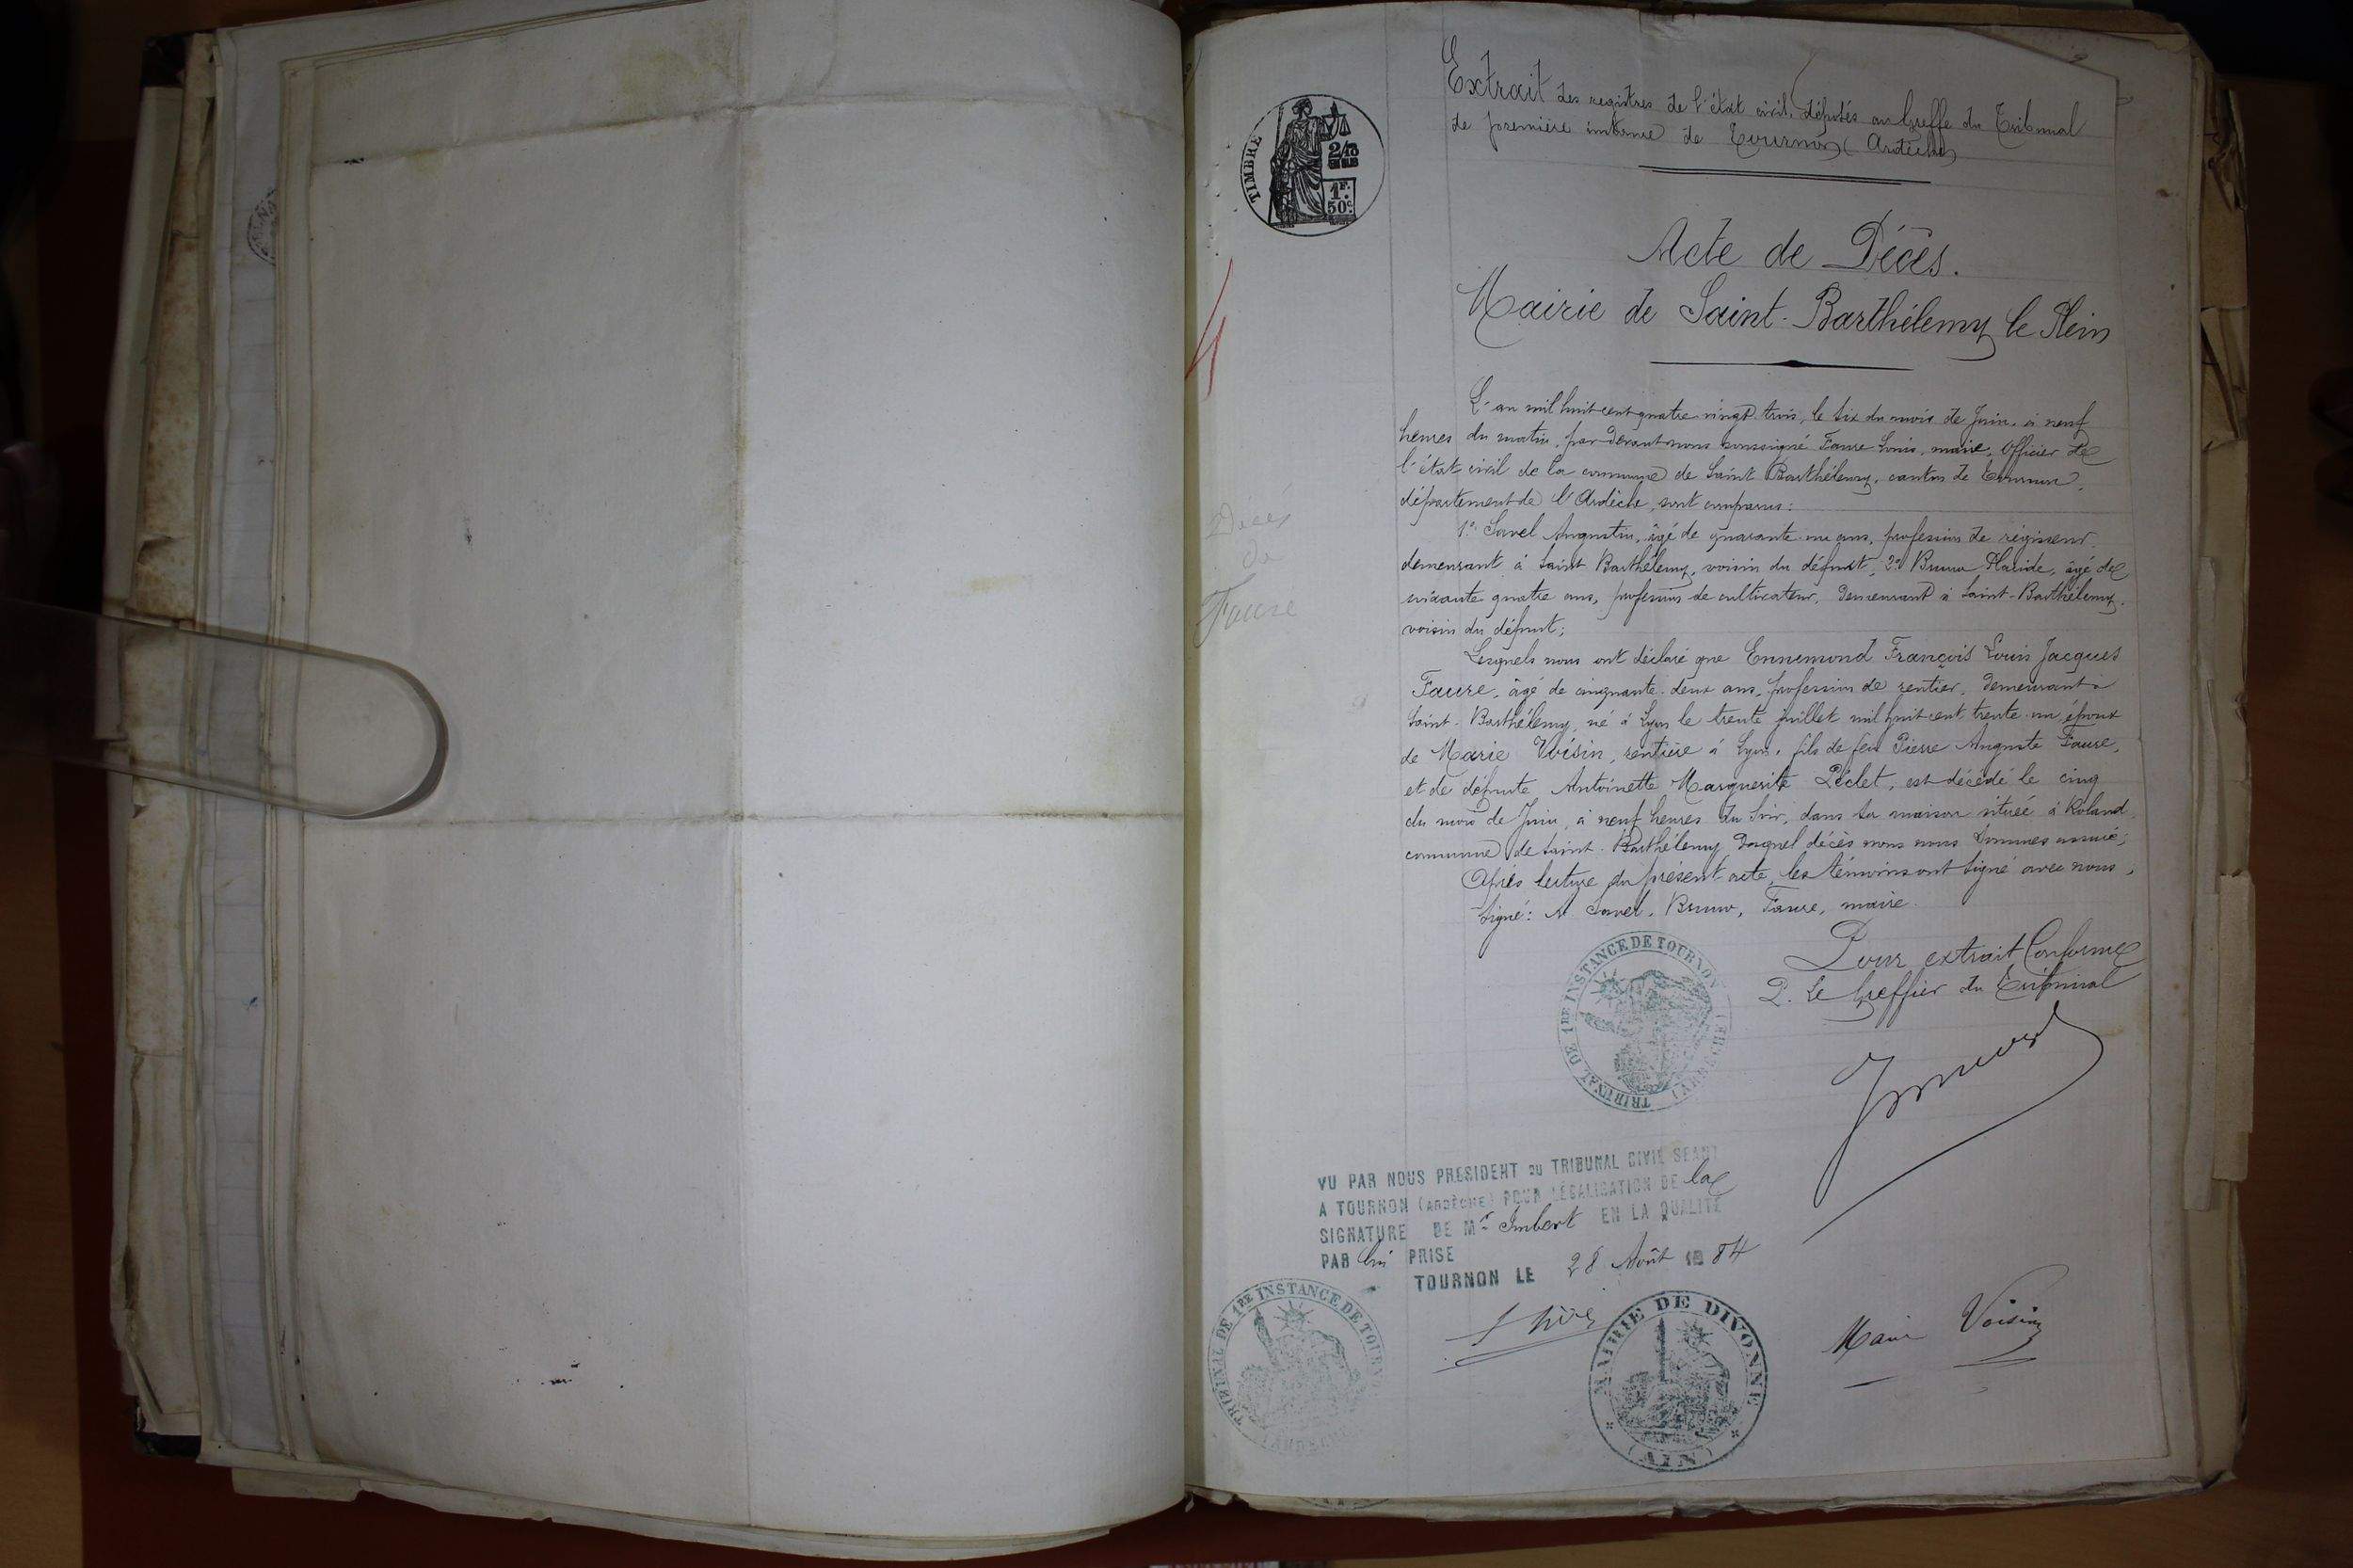 Extrait des registres de l'état civil, déposés au Greffe du Tribunal
de première instance de Tournon (Ardèche)
TIMBRE
2/10
EN SUS
1F.
50c.
Acte de Décès.
Mairie de Saint-Barthélemy le Plein
L'an mil huit cent quatre vingt trois, le six du mois de Juin, à neuf
heures du matin, par devant nous soussigné Faure Louis, maire, Officier de
l'état civil de la commune de Saint Barthélemy, canton de Tournon,
département de l'Ardèche, sont comparus:
1° Savel Augustin, âgé de quarante un ans, profession de régisseur
demeurant à Saint Barthélemy, voisin du défunt, 2° Bruno Placide, âgé de
soixante quatre ans, profession de cultivateur, demeurant à Saint-Barthélemy,
voisin du défunt;
Décès
de
Faure
Lesquels nous ont déclaré que Ennemond François Louis Jacques
Faure, âgé de cinquante deux ans, profession de rentier, demeurant à
Saint-Barthélemy, né à Lyon le trente juillet mil huit cent trente un, époux
de Marie Voisin, rentière à Lyon, fils de feu Pierre Auguste Faure,
et de défunte Antoinette Marguerite Péclet, est décédé le cinq
du mois de Juin, à neuf heures du soir, dans sa maison située à Roland
commune de Saint-Barthélemy duquel décès nous nous sommes assuré;
Après lecture du présent acte, les témoins ont signé avec nous,
Signé: A Savel, Bruno, Faure, maire.
Pour extrait Conforme
P. Le Greffier du Tribunal
TRIBUNAL DE 1RE INSTANCE DE TOURNON (ARDECHE)
VU PAR NOUS PRESIDENT DU TRIBUNAL CIVIL SEANT
A TOURNON (ARDÈCHE) POUR LÉGALISATION DE la
SIGNATURE DE Mr Imbert EN LA QUALITÉ
PAR lui PRISE
TOURNON LE 28 Août 1884
TRIBUNAL DE 1RE INSTANCE DE TOURNON (ARDECHE)
MAIRIE DE DIVONNE (AIN)
Marie Voisin